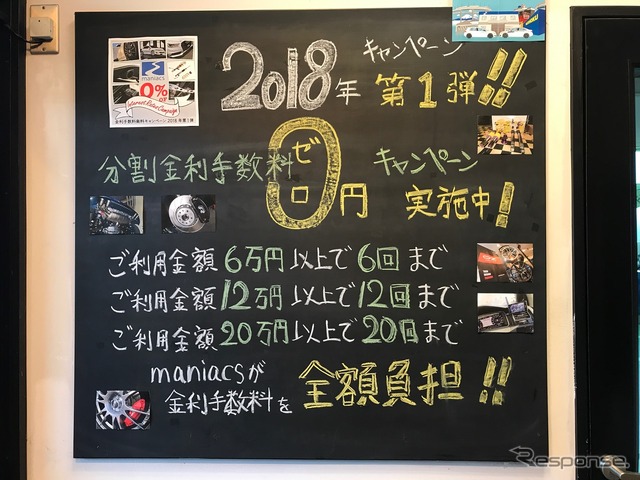 maniacs
0% OFF
金利手数料無料キャンペーン 2018年第1弾
2018年 キャンペーン 第1弾!!
分割金利手数料 ゼロ 0円 キャンペーン 実施中!
ご利用金額 6万円以上で 6回まで
ご利用金額 12万円以上で 12回まで
ご利用金額 20万円以上で 20回まで
maniacsが
金利手数料を 全額負担!!
Response.